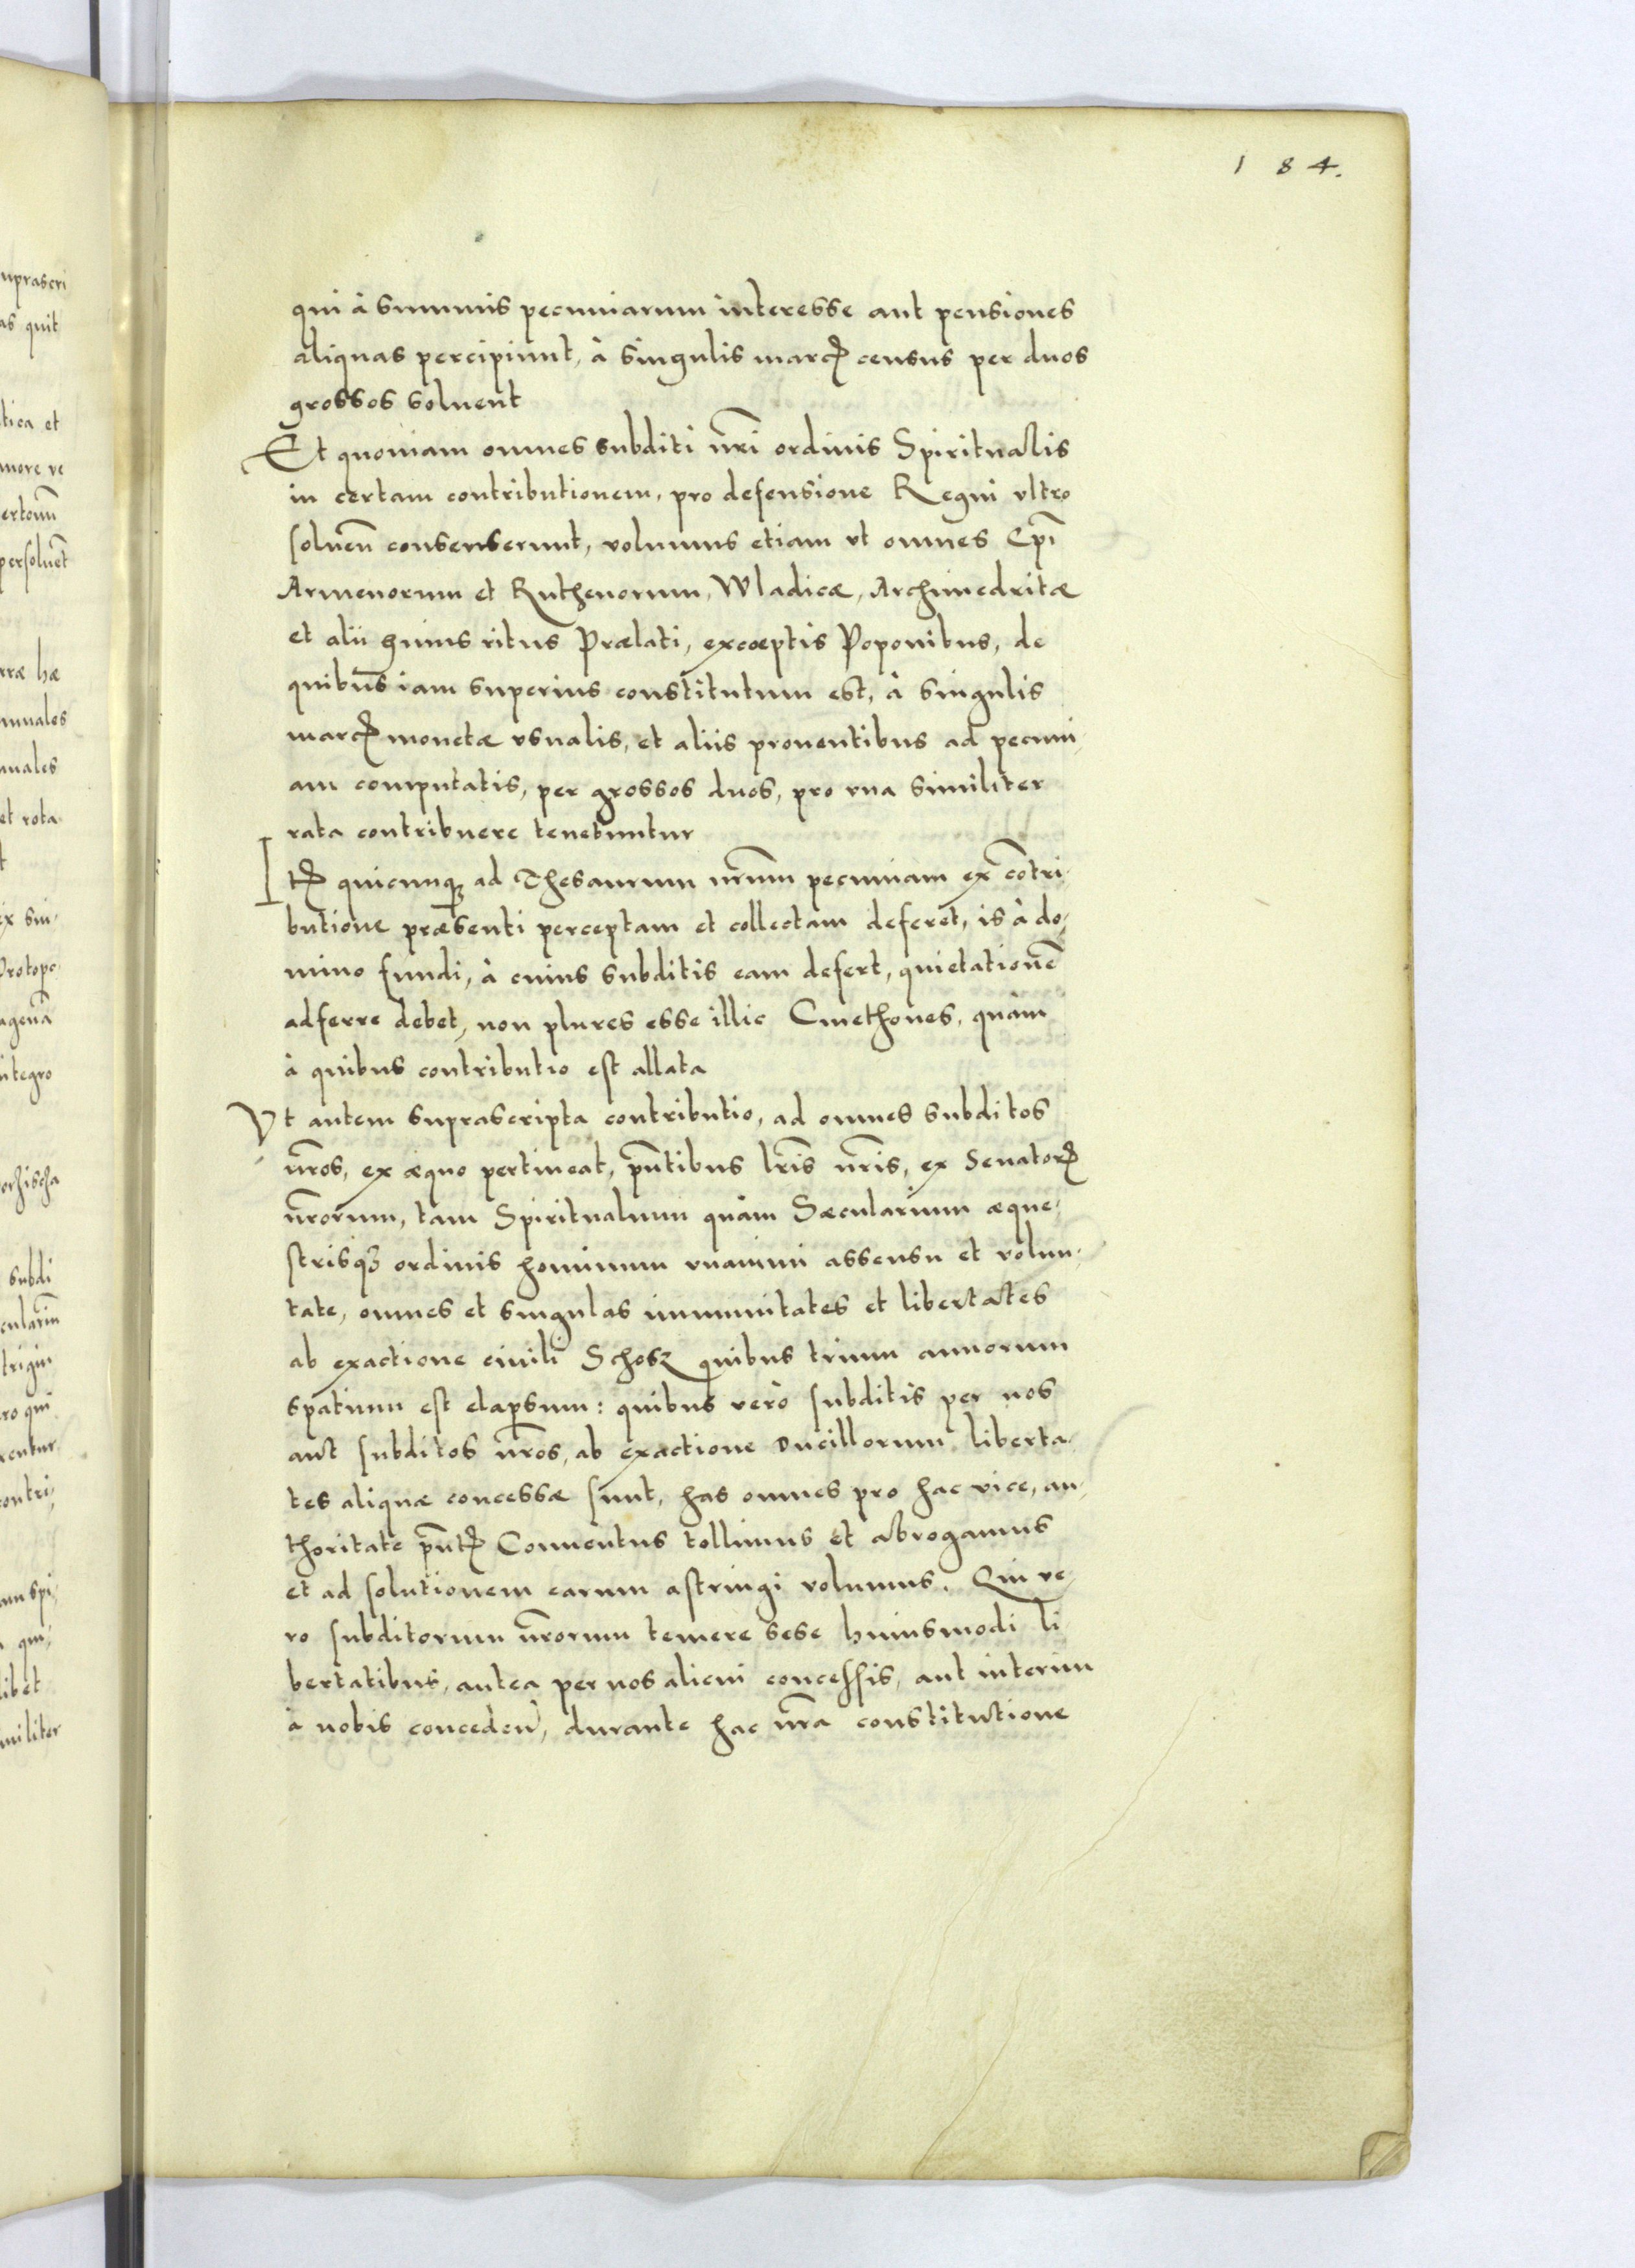 184.
qui à summis pecuniarum interesse aut pensiones
aliquas percipiunt, à singulis marcꝝ census per duos
grossos soluent
Et quoniam omnes subditi nr̃i ordinis Spiritualis
in certam contributionem, pro defensione Regni vltro
soluen̄ consenserunt, volumus etiam vt omnes Ep̃i
Armenorum et Ruthenorum, Wladicæ, Archimedritæ
et alii huius ritus Prælati, exceptis Poponibus, de
quibus iam superius constitutum est, à singulis
marcꝝ monetæ vsualis, et aliis prouentibus ad pecuni,
am computatis, per grossos duos, pro vna similiter
rata contribuere tenebuntur
Itꝝ quicunqꝫ ad Thesaurum nr̃um pecuniam ex cõtri,
butione præsenti perceptam et collectam deferet, is à do,
mino fundi, à cuius subditis eam defert, quietationẽ
adferre debet, non plures esse illic Cmethones, quàm
à quibus contributio est allata
Vt autem suprascripta contributio, ad omnes subditos
nr̃os, ex æquo pertineat, pñtibus lr̃is nr̃is, ex Senatorꝝ
nr̃orum, tam Spiritualium quàm Sæcularium æque,
strisqꝫ ordinis hominum vnanimi assensu et volun,
tate, omnes et singulas immunitates et libertates
ab exactione ciuili Schosz quibus trium annorum
spatium est elapsum: quibus verò subditis per nos
aut subditos nr̃os, ab exactione Ducillorum liberta,
tes aliquæ concessæ sunt, has omnes pro hac vice, au,
thoritate pñtꝝ Conuentus tollimus et abrogamus
et ad solutionem earum astringi volumus. Qui ve,
ro subditorum nr̃orum temere sese huiusmodi li
bertatibus, antea per nos alicui concessis, aut interim
à nobis conceden̄, durante hac nr̃a constitutione